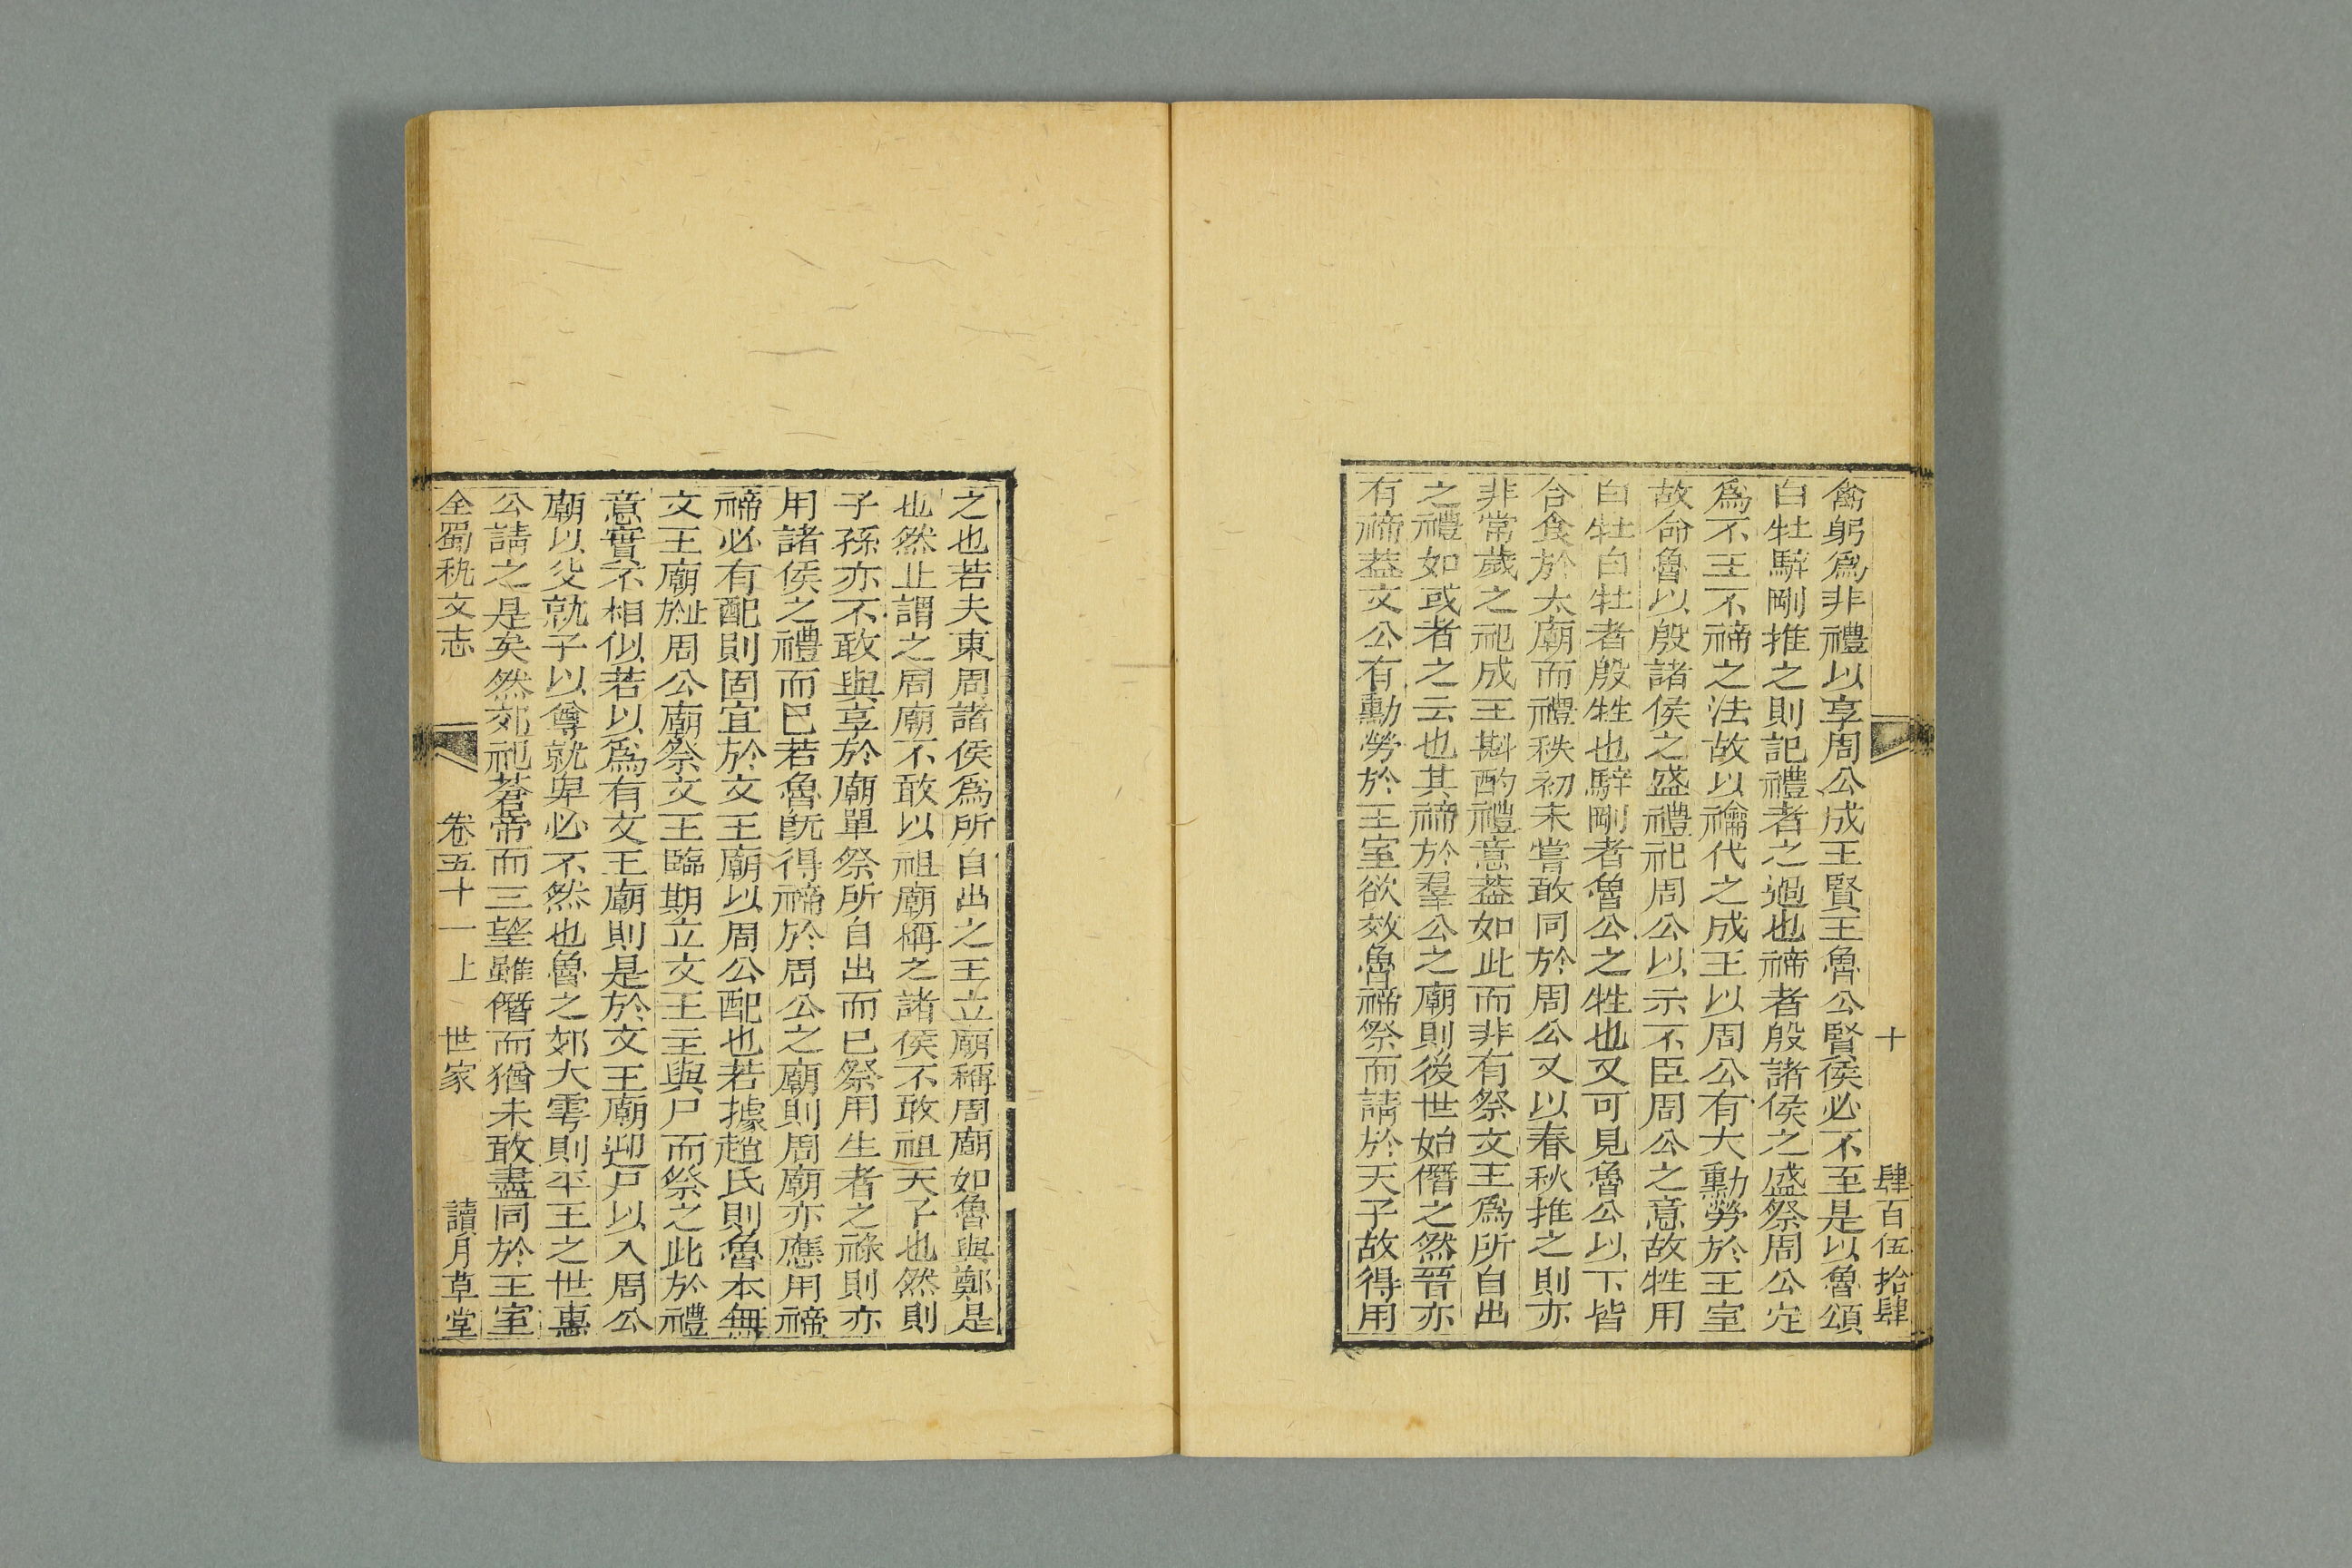 十 肆百伍拾肆
禽躬爲非禮以享周公成王賢王魯公賢侯必不至是以魯頌
白牡騂剛推之則記禮者之過也禘者殷諸侯之盛祭周公定
爲不王不禘之法故以禴代之成王以周公有大勳勞於王室
故命魯以殷諸侯之盛禮祀周公以示不臣周公之意故牲用
白牡白牡者殷牲也騂剛者魯公之牲也又可見魯公以下皆
合食於太廟而禮秩初未嘗敢同於周公又以春秋推之則亦
非常歲之祀成王斟酌禮意葢如此而非有祭文王爲所自出
之禮如或者之云也其禘於羣公之廟則後世始僭之然晉亦
有禘葢文公有勳勞於王室欲效魯禘祭而請於天子故得用
之也若夫東周諸侯爲所自出之王立廟稱周廟如魯與鄭是
也然止謂之周廟不敢以祖廟稱之諸侯不敢祖天子也然則
子孫亦不敢與享於廟單祭所自出而已祭用生者之祿則亦
用諸侯之禮而已若魯旣得禘於周公之廟則周廟亦應用禘
禘必有配則固宜於文王廟以周公配也若據趙氏則魯本無
文王廟於止周公廟祭文王臨期立文王主與尸而祭之此於禮
意實不相似若以爲有文王廟則是於文王廟迎尸以入周公
廟以父就子以尊就卑必不然也魯之郊大雩則平王之世惠
公請之是矣然郊祀蒼帝而三望雖僭而猶未敢盡同於王室
全蜀秇文志 卷五十一上 世家 讀月草堂